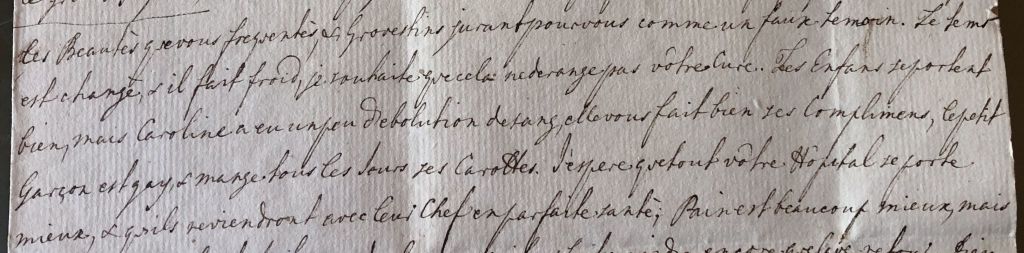 des Beautès que vous frequentès, & Grovestins jurant pour vous comme un faux temoin. Le tems
est changè, & il fait froid, je souhaite que cela ne derange pas vôtre Cure. Les Enfans se portent
bien, mais Caroline a eu un pou d'ebolution de sang, elle vous fait bien ses Complimens, le petit
Garçon est gay, & mange tous les Jours ses Carottes. J'espere que tout vôtre Hopital se porte
mieux, & qu'ils reviendront avec leur Chef en parfaite santè; Pain est beaucoup mieux, mais